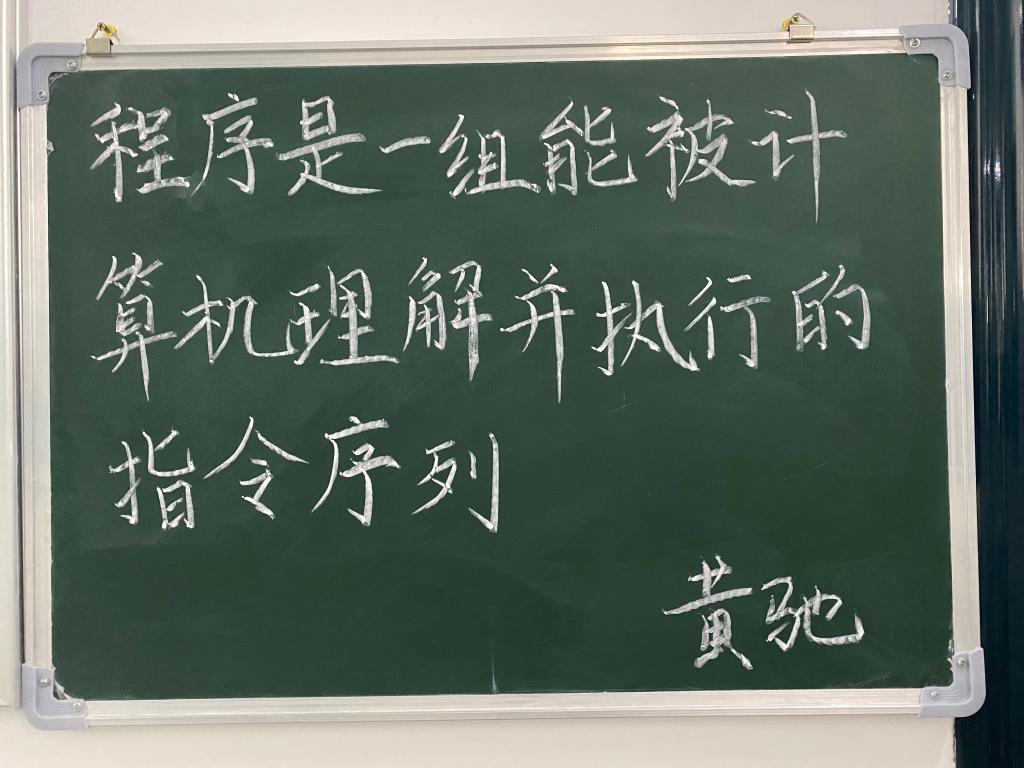 程序是一组能被计
算机理解并执行的
指令序列
黄驰